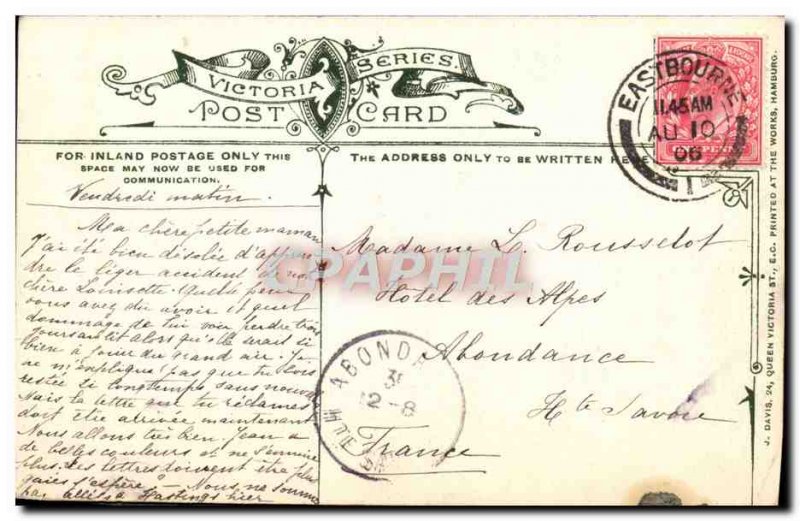 VICTORIA SERIES.
POST CARD
FOR INLAND POSTAGE ONLY THIS
SPACE MAY NOW BE USED FOR
COMMUNICATION.
THE ADDRESS ONLY TO BE WRITTEN HERE
EASTBOURNE
11.45AM
AU 10
06
1
Vendredi matin.
Ma chère petite maman
J'ai été bien désolée d'appren
dre le léger accident de
chère Louisette. Quelle peur
vous avez dû avoir et quel
dommage de lui voir perdre trois
jours au lit alors qu'elle serait si
bien à jouir du grand air. Je
ne m'explique pas que tu sois
restée si longtemps sans nouv
Mais la lettre que tu réclames
doit être arrivée maintenant
Nous allons très bien. Jean a
de belles couleurs et ne s'ennuie
plus. Les lettres doivent être plus
gaies j'espère. Nous ne sommes
pas allés à Hastings hier
Madame L. Rousselot
Hôtel des Alpes
Abondance
Hte Savoie
France
CPAPHIL
ABONDA
3e
12-8
J. DAVIS, 24, QUEEN VICTORIA ST., E.C. PRINTED AT THE WORKS, HAMBURG.